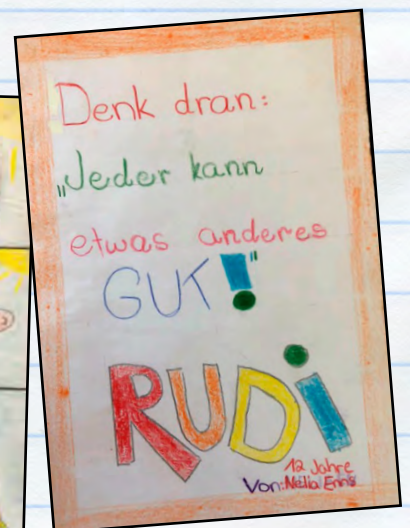 Denk dran:
„Jeder kann
etwas anderes
GUT!"
RUDi
12 Jahre
Von: Nellia Enns